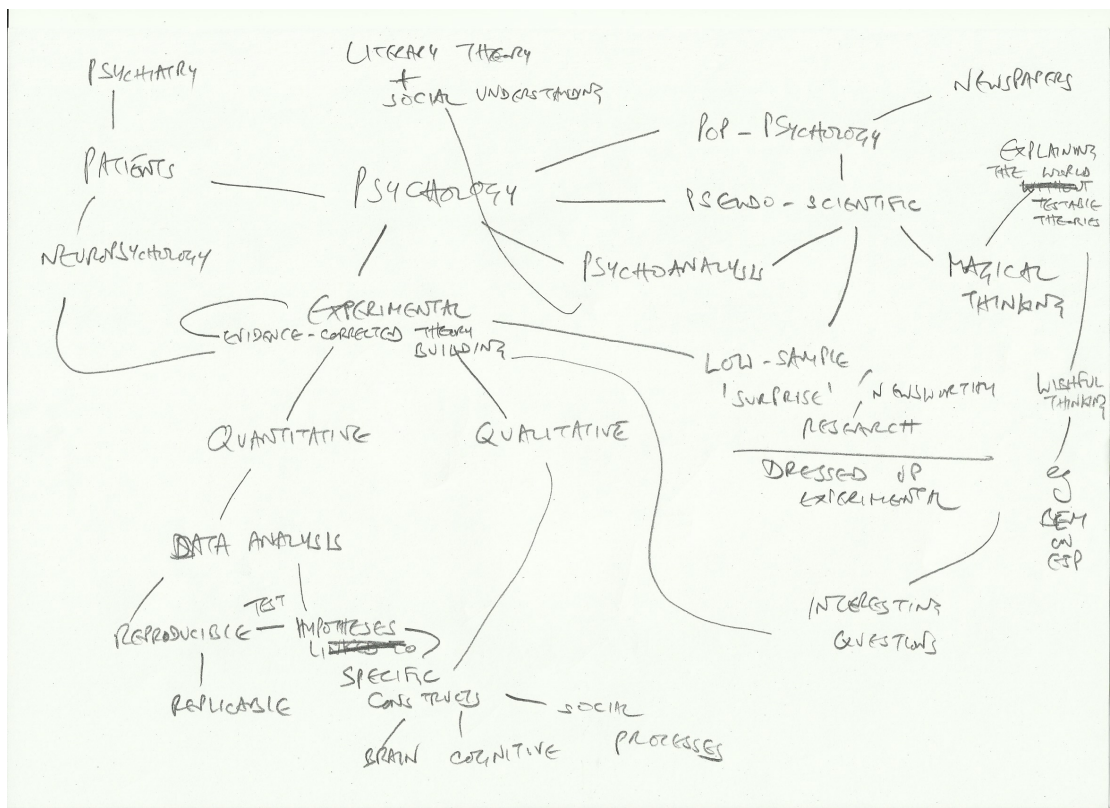 LITERARY THEORY
+
SOCIAL UNDERSTANDING
PSYCHIATRY
NEWSPAPERS
POP-PSYCHOLOGY
EXPLAINING
THE WORLD
WITHOUT
TESTABLE
THEORIES
PATIENTS
PSYCHOLOGY
PSEUDO-SCIENTIFIC
NEUROPSYCHOLOGY
PSYCHOANALYSIS
MAGICAL
THINKING
EXPERIMENTAL
EVIDENCE-CORRECTED THEORY
BUILDING
LOW-SAMPLE
'SURPRISE' / NEWSWORTHY
RESEARCH
WISHFUL
THINKING
QUANTITATIVE
QUALITATIVE
DRESSED UP
EXPERIMENTAL
eg
BEM
ON
ESP
DATA ANALYSIS
TEST
REPRODUCIBLE
HYPOTHESES
LINKED TO
INTERESTING
QUESTIONS
SPECIFIC
CONSTRUCTS
REPLICABLE
SOCIAL
PROCESSES
BRAIN
COGNITIVE